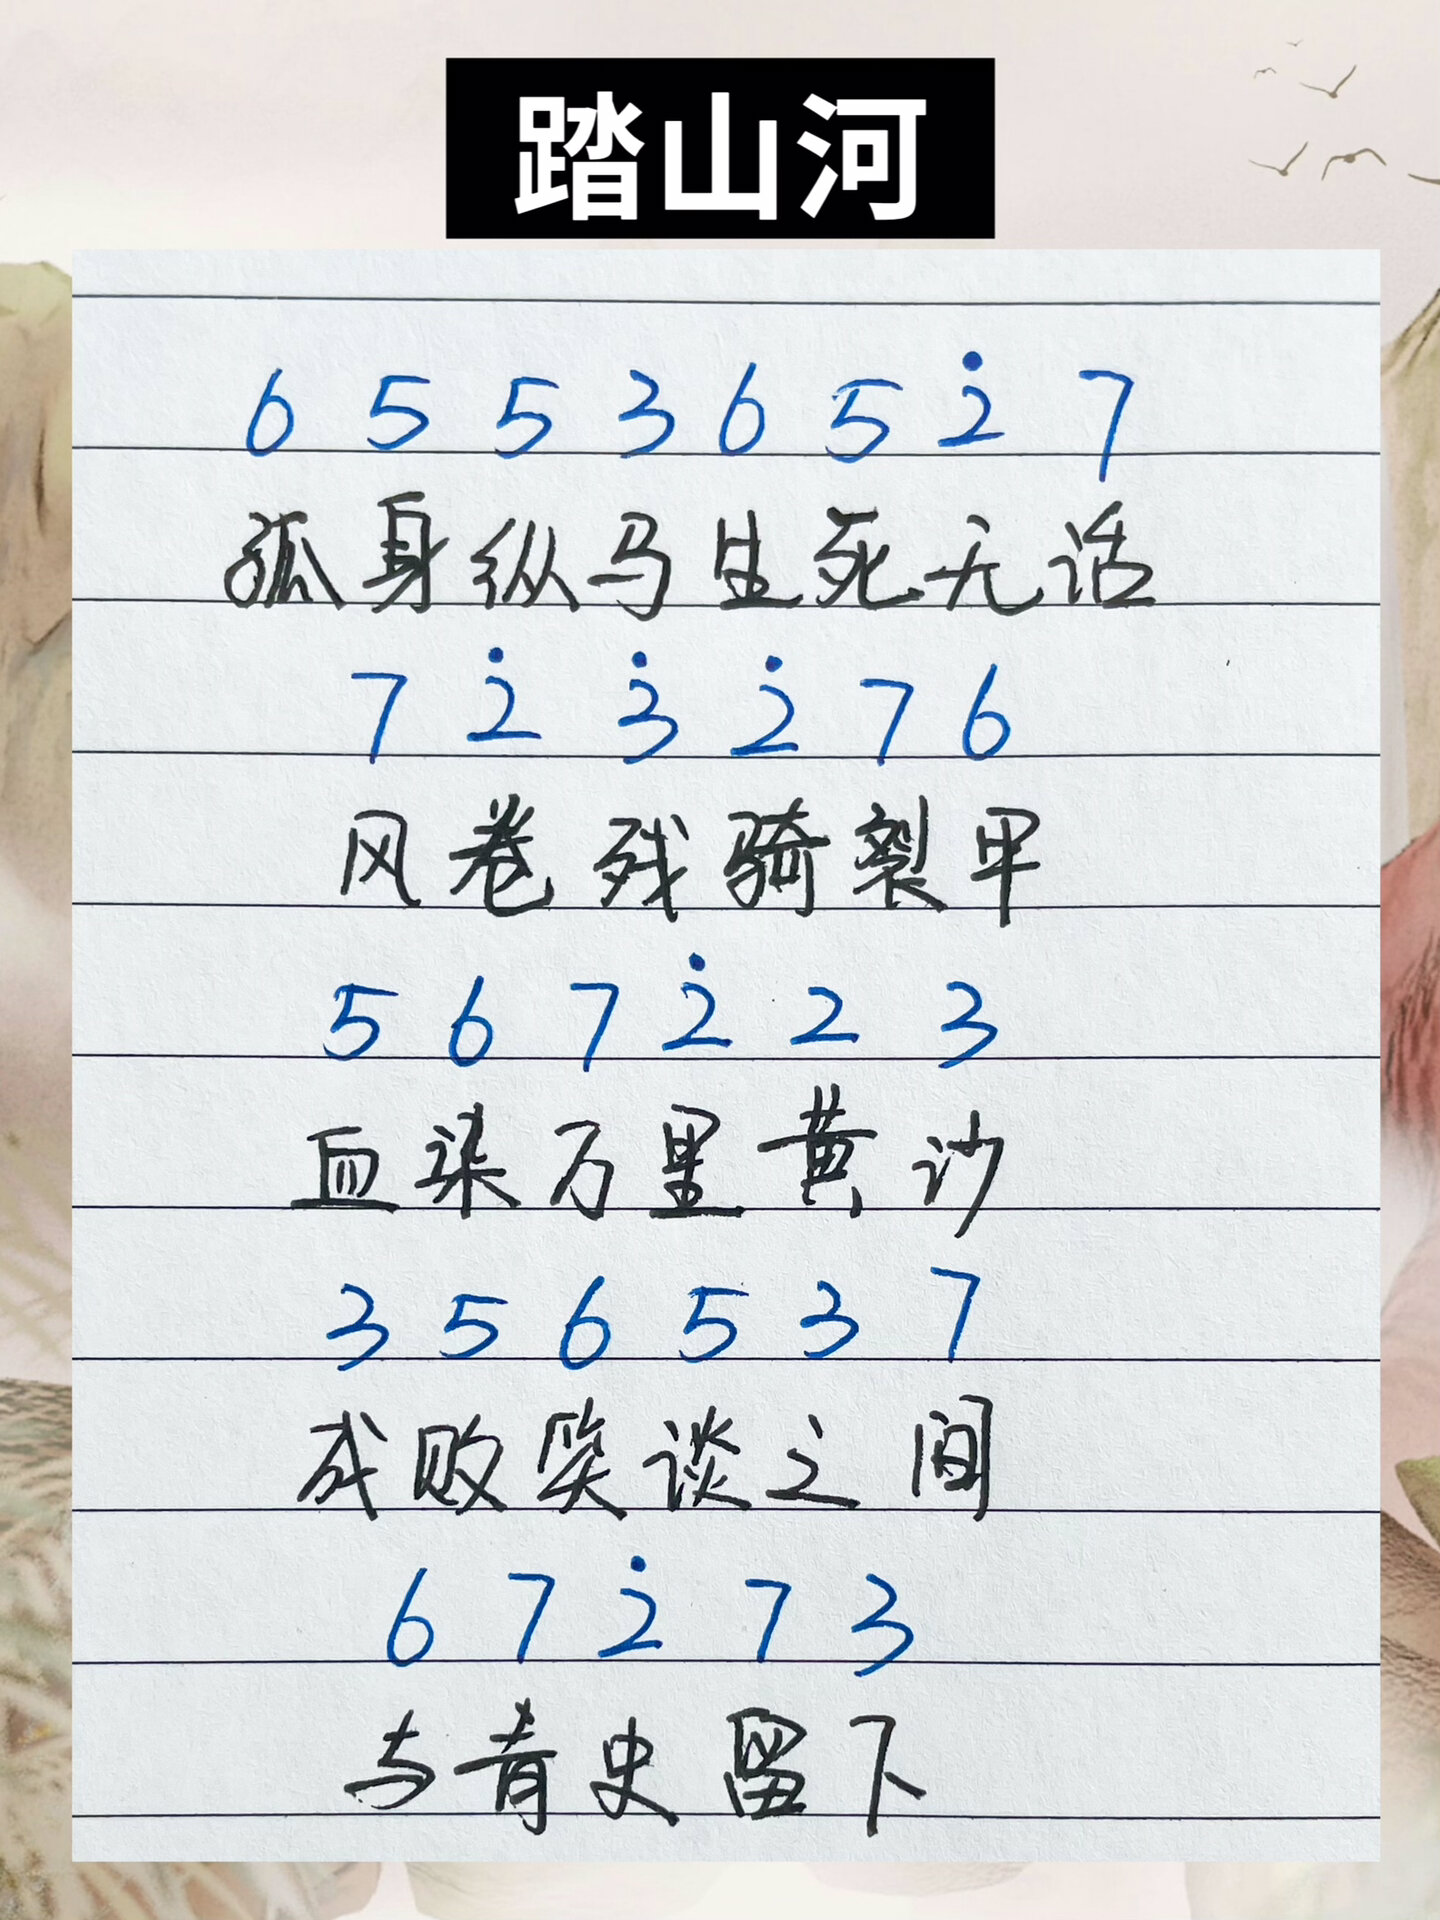 踏山河
6 5 5 3 6 5 2̇ 7
孤身纵马生死无话
7 2̇ 3̇ 2̇ 7 6
风卷残骑裂甲
5 6 7 2̇ 2 3
血染万里黄沙
3 5 6 5 3 7
成败笑谈之间
6 7 2̇ 7 3
与青史留下